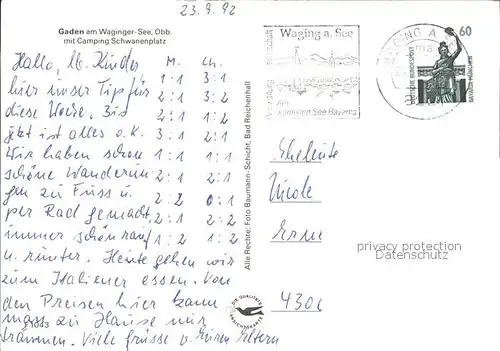 23.9.92
Gaden am Waginger-See, Obb.
mit Camping Schwanenplatz
Hallo, lb. Kinder
hier unser Tip für
diese Woche. Bis
jetzt ist alles o.K.
Wir haben schon
schöne Wanderun
gen zu Fuss u.
per Rad gemacht,
immer schön rauf
u. runter. Heute gehen wir
zum Italiener essen. Von
den Preisen hier kann
man zu Hause nur
träumen. Viele Grüsse v. Euren Eltern
M. Ch.
1:1 3:1
2:1 3:2
2:1 2:2
3:1 1:2
1:1 1:1
2:1 1:2
2:2 0:1
2:1 2:2
1:2 1:2
Alle Rechte: Foto Baumann-Schicht, Bad Reichenhall
DIE QUALITÄTS
ANSICHTSKARTE
Waging a. See
Am
wärmsten See Bayerns
WAGING A
60
DEUTSCHE BUNDESPOST
BAVARIA MÜNCHEN
Eheleute
Nicole
4300
privacy protection
Datenschutz